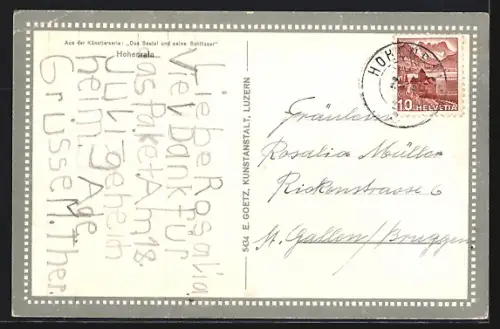 Aus der Künstlerserie: „Das Beatei und seine Schlösser"
Hohenrain
Liebe Rosalia
Viel Dank für
das Paket Am 18.
Juli gehe ich
heim. Ade
Grüsse M. Ther.
5434 E. GOETZ, KUNSTANSTALT, LUZERN
HOHENRAIN
10 HELVETIA
Fräulein
Rosalia Müller
Rickenstrasse 6
St. Gallen/Bruggen